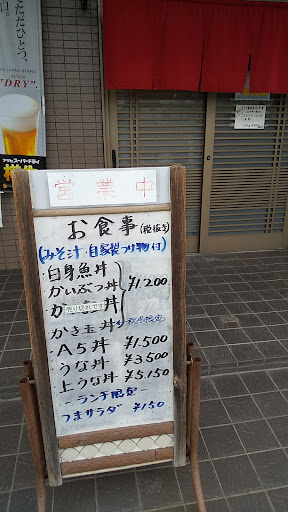 ただひとつ、
"DRY"
アサヒスーパードライ
営業中
お食事(税抜き)
(みそ汁・自家製つけ物付)
・白身魚丼
・かいぶつ丼
・か 売り切れです 丼
¥1,200
・かき玉丼
・A5丼 ¥1,500
・うな丼 ¥3,500
・上うな丼 ¥5,150
-ランチ限定-
つまサラダ ¥150